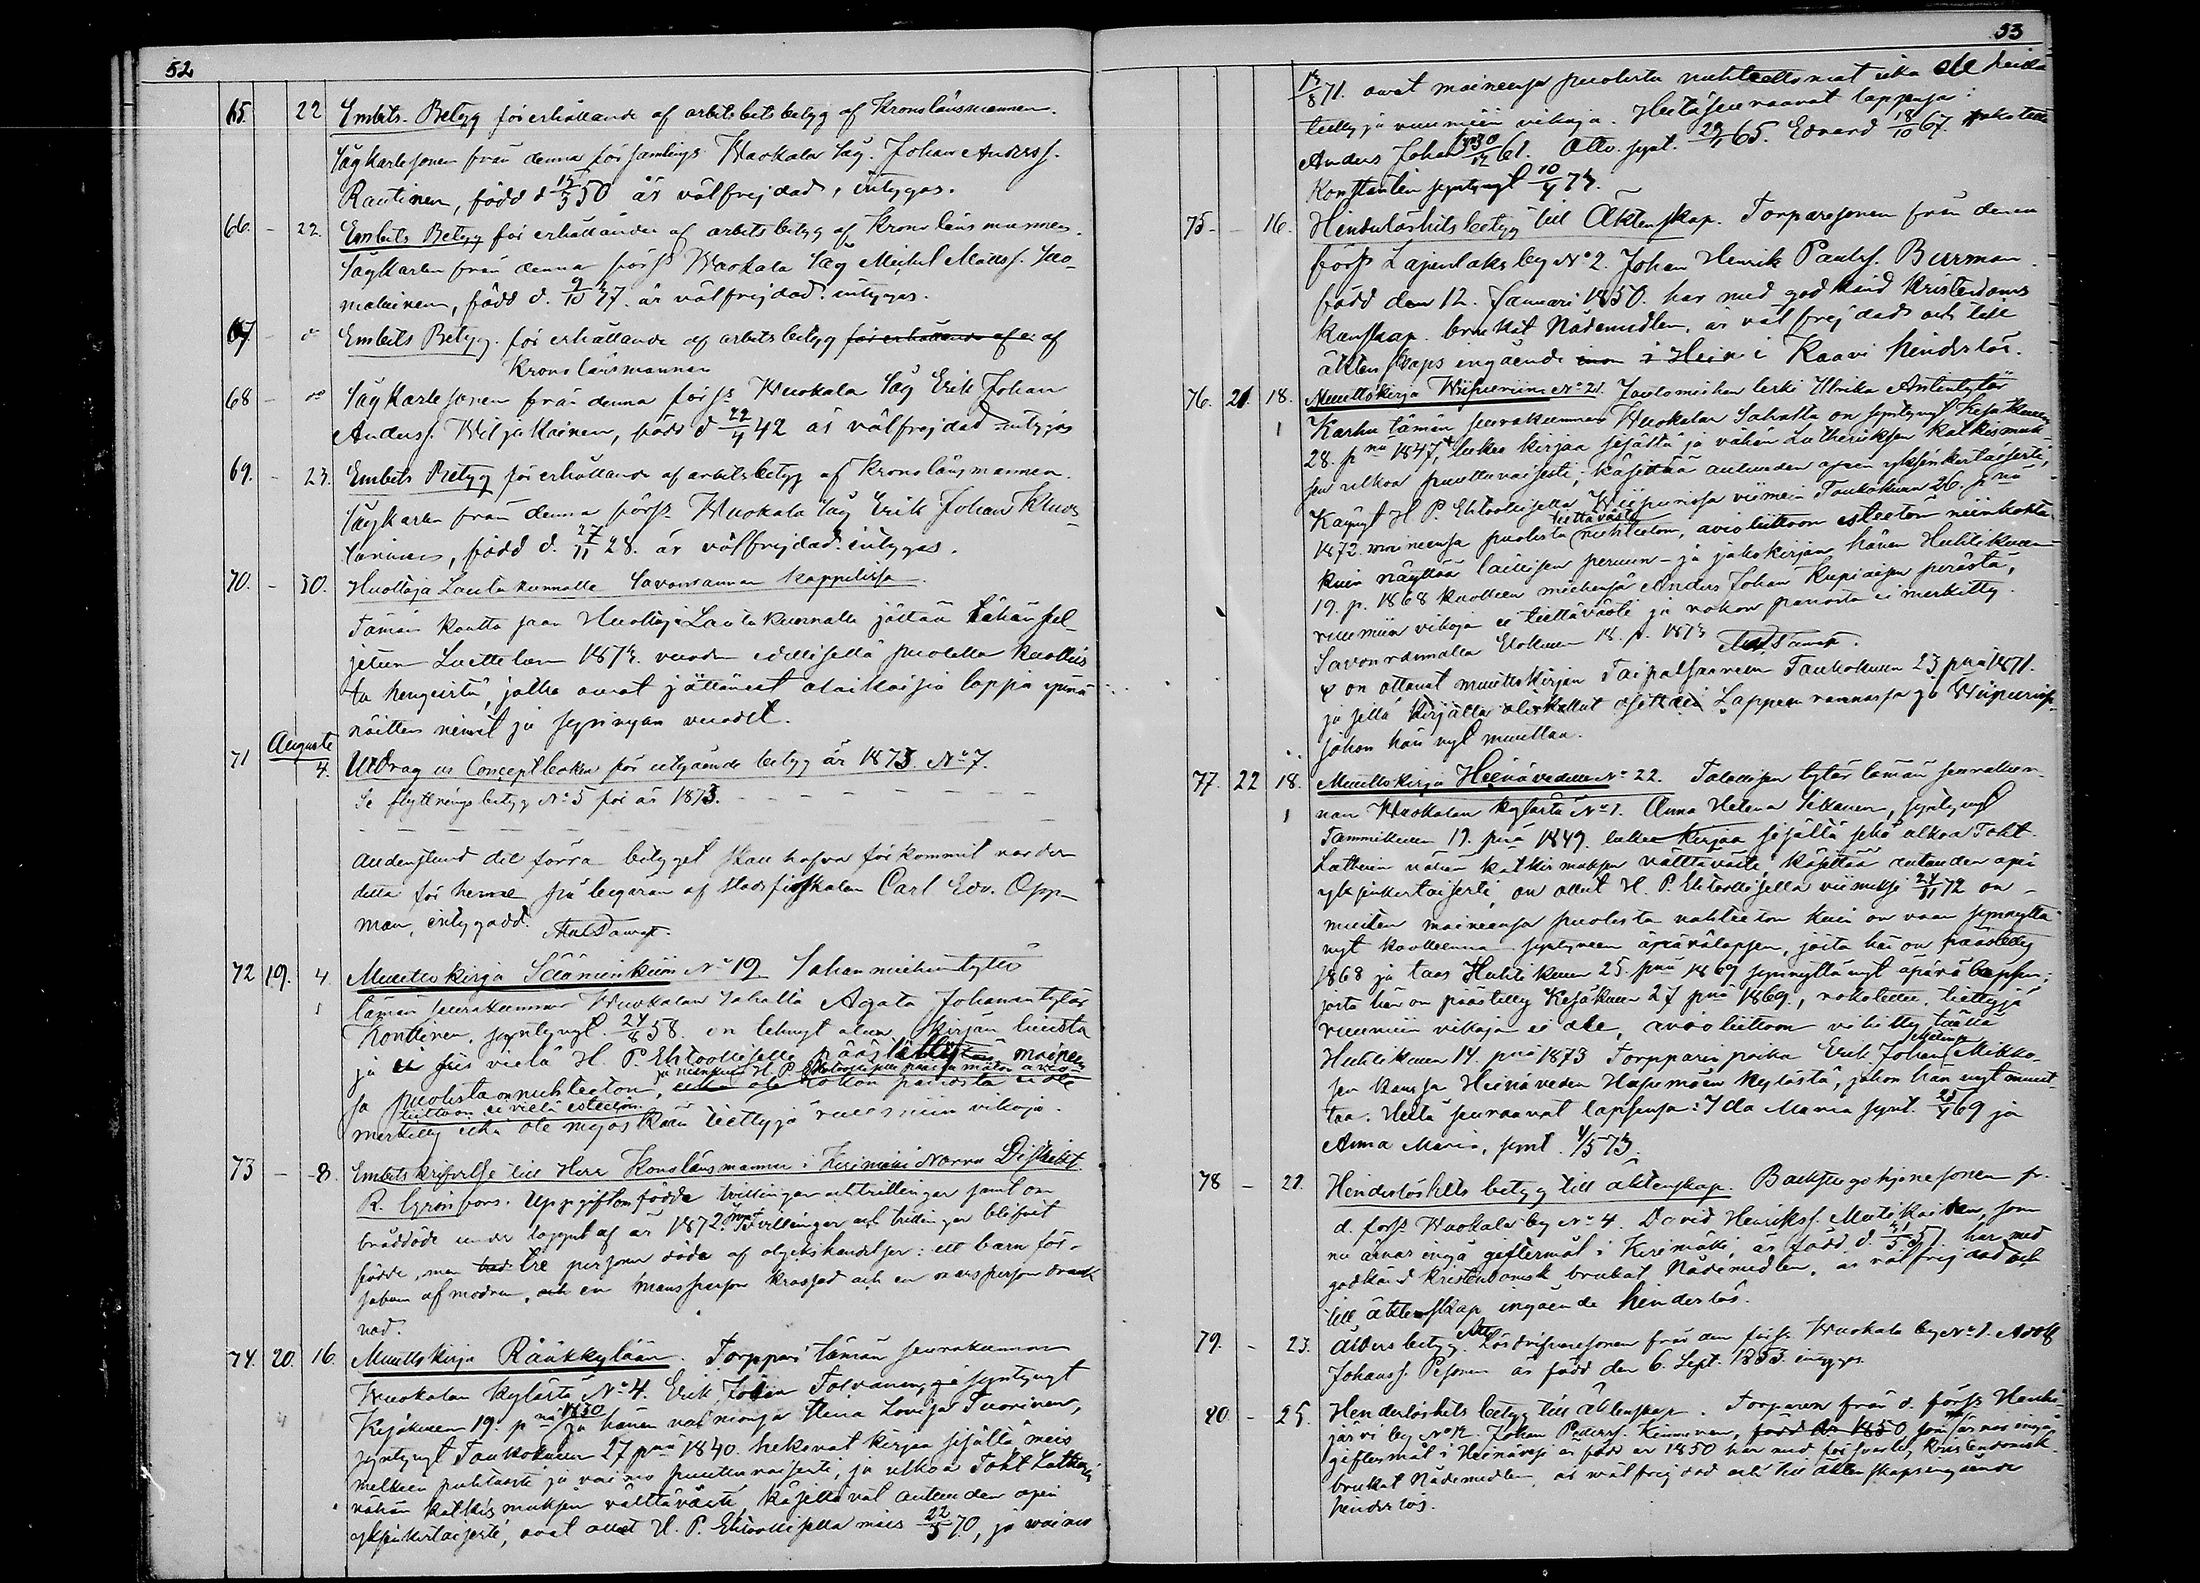 52
65. 22 Embets-Betyg för erhållande af arbetsbetyg af Kronolänsmannen.
Sågkarlesonen från denna församlings Wuokala såg. Johan Anderss.
Rautinen, född d 50 är välfrejdad, intygas.
66. - 22. Embets Betyg för erhållande af arbetsbetyg af Kronolänsmannen.
Sågkarlen från denna förs. Wuokala såg Michel Matss. Sao-
malainen, född d. 9/10 37. är välfrejdad: intygas.
67 - Embets Betyg för erhållande af arbetsbetyg för erhållande af af
Kronolänsmannen
68 - Sågkarlesonen från denna förs. Wuokala såg Erik Johan
Anderss. Wiljakainen, född d 22/4 42 är välfrejdad intygas
69. - 23. Embets Betyg för erhållande af arbetsbetyg af Kronolänsmannen.
Sågkarlen från denna förs. Wuokala såg Erik Johan
född d. 27/11 28. är välfrejdad: intygas.
70. - 30. Huoltaja Lautakunnalle Savonrannan kappelissa.
Tämän kautta saan Huoltaja Lautakunnalle jättää
jetun Luettelon 1873. vuoden edellisellä puolella kuolleis
ta hengeistä, jotka ovat jättäneet alaikäisiä lapsia ynnä
näitten nimet ja syntymä vuodet.
Augusti
71 4. Utdrag ur Conceptboken för utgående betyg år 1873. No 7.
Se flyttningsbetyg No 5 för år 1873. - - - - -
- - - - - -
det förra betyget skall hafva förkommit varder
detta för henne på begäran af stadsfiskalen Carl Edv. Opp-
man, intygadt.
72 19. 4. Muuttokirja Sääminkiin No 19 Sahamiehentytär
tämän seurakunnan Wuokalan Sahalta Agata Johanintytär
Konttinen, syntynyt 24/8 58. on tehnyt alun kirjan luusta
ja ei siis vielä H. P. Ehtoolliselle päästetty mainees
sa puolesta on nuhteeton,
merkitty eikä ole myöskään tiettyjä ruumiin vikoja.
73 - 8. Embetsskrifvelse till Herr Kronolänsmannen i Kerimäki Norra Distrikt
R. Grönfors. Uppgift om födde tvillingar och trillingar samt om
bråddöde under loppet af år 1872. Tvillingar och trillingar blifvit
födde, men tre personer döda af olyckshändelser: ett barn för-
af modren, och en mansperson krossad och en mansperson drunk
nad.
74. 20. 16. Muuttokirja Rääkkylään. Torppari tämän seurakunnan
Wuokalan kylästä No 4. Erik Johan Tolvanen, syntynyt
Kesäkuun 19. p nä 1830 ja hänen vaimonsa Elena Lovisa Tuorinen,
syntynyt Toukokuun 27 pnä 1840. lukevat kirjaa sisältä mies
melkein puhtaasti ja vaimo puuttuvaisesti, ja ulkoa Toht Lutherin
vähän katkismuksen välttävästi, käsittävät autuuden opin
yksinkertaisesti, ovat olleet H. P. Ehtoollisella mies 22/3 70, ja vaimo
53
71. ovat maineensa puolesta nuhteettomat eikä ole heidän
tiettyjä ruumiin vikoja. Heitä seuraavat lapsensa:
Anders Johan synt 30/12 61. Otto. synt. 65. Edvard 18/10 67.
Konstantin syntynyt 10/4 73.
75 - 16. Hinderlöshetsbetyg till Äktenskap. Torparesonen från denna
förs. Lajunlaks by No 2. Johan Henrik Paulss. Burman
född den 12. Januari 1850. har med godkänd Kristendoms
kunskap brukat Nådemedlen, är välfrejdad och till
äktenskaps ingående i Raavi hinderlös.
76. 21. 18. Muuttokirja Wiipuriin No 21. leski Ulrika Antintytär
Karhu tämän seurakunnan Wuokalan Sahalta on syntynyt Kesäkuun
28. p nä 1847, lukee kirjaa sisältä ja vähän Lutheruksen katkismuk-
sen ulkoa puuttuvaisesti; käsittää autuuden opin yksinkertaisesti,
Käynyt H. P. Ehtoollisella Wiipurissa viimein Toukokuun 26. p nä
1872. maineensa puolesta tiettävästi nuhteeton, avioliittoon esteetön niinkuin
kuin näyttää laillisen perunn- ja jakokirjan hänen Huhtikuun
19. p. 1868 kuolleen miehensä Anders Johan Kupiaisen perästä,
ruumiin vikoja ei tiettävästi ja rokon panosta ei merkitty.
Savonrannalla Elokuun 18. p. 1873
on ottanut muuttokirjan Taipalsaareen Toukokuun 23 pnä 1871.
ja sillä kirjalla oleskellut Lappeenrannassa ja Wiipurissa
johon hän nyt muuttaa.
77. 22 18. Muuttokirja Heinäveden No 22. Talollisen tytär tämän seurakun-
nan Wuokalan kylästä No 1. Anna Helena syntynyt
Tammikuun 19. pnä 1849. lukee kirjaa sisältä sekä ulkoa Toht
Lutherin vähän katkismuksen välttävästi, käsittää autuuden opin
yksinkertaisesti, on ollut H. P. Ehtoollisella viimeksi 24/11 72 on
muuten maineensa puolesta nuhteeton kuin on vaan synnyttä
nyt kuolleena syntyneen äpärälapsen, josta hän on päästetty
1868 ja taas Huhtikuun 25. pnä 1869 synnyttänyt äpärä lapsen;
josta hän on päästetty Kesäkuun 27 pnä 1869., rokotettu, tiettyjä
ruumiin vikoja ei ole, avioliittoon vihitty täällä
Huhtikuun 14. pnä 1873 Torpparin poika Erik Johan Mikko-
sen kanssa Heinäveden kylästä, johon hän nyt muut-
taa. Heitä seuraavat lapsensa: Ida Maria synt. 69 ja
Anna Maria, synt. 4/5 73.
78 - 21. Hinderlöshets betyg till äktenskap. Backstugohjonesonen fr.
d. förs. Wuokala by No 4. David Henrikss. Mutikainen, som
nu ärnar ingå giftermål i Kerimäki, är född d. 51. har med
godkänd Kristendomsk brukat Nådemedlen, är välfrejdad och
till äktenskap ingående hinderlös.
79. - 23. Åldersbetyg. Lösdrifvaresonen från den förs. Wuokala by No 1. Adolf
Johanss. Pesonen är född den 6. Sept. 1853. intygas.
80 - 25. Hinderlöshets betyg till äktenskap. Torparen från d. förs.
järvi by No 12. Johan Peterss. Kinnunen, född år 1850, som ärnar ingå
giftermål i Heinävesi är född år 1850 har med försvarlig kristendomsk.
brukat Nådemedlen, är välfrejdad och till äktenskapsingående
hinderlös.